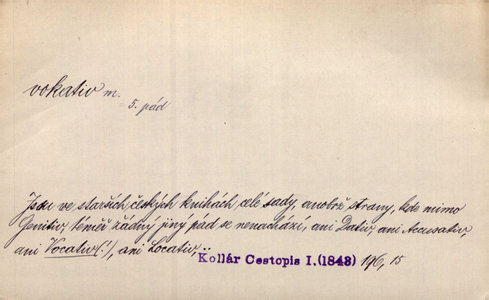 vokativ m.
5. pád
Jsou ve starších českých knihách celé sady, anobrž strany, kde mimo
Genitiv, téměř žádný jiný pád se nenachází, ani Dativ, ani Accusativ,
ani Vocativ(!), ani Locativ,..
Kollár Cestopis I.(1843) 196, 15